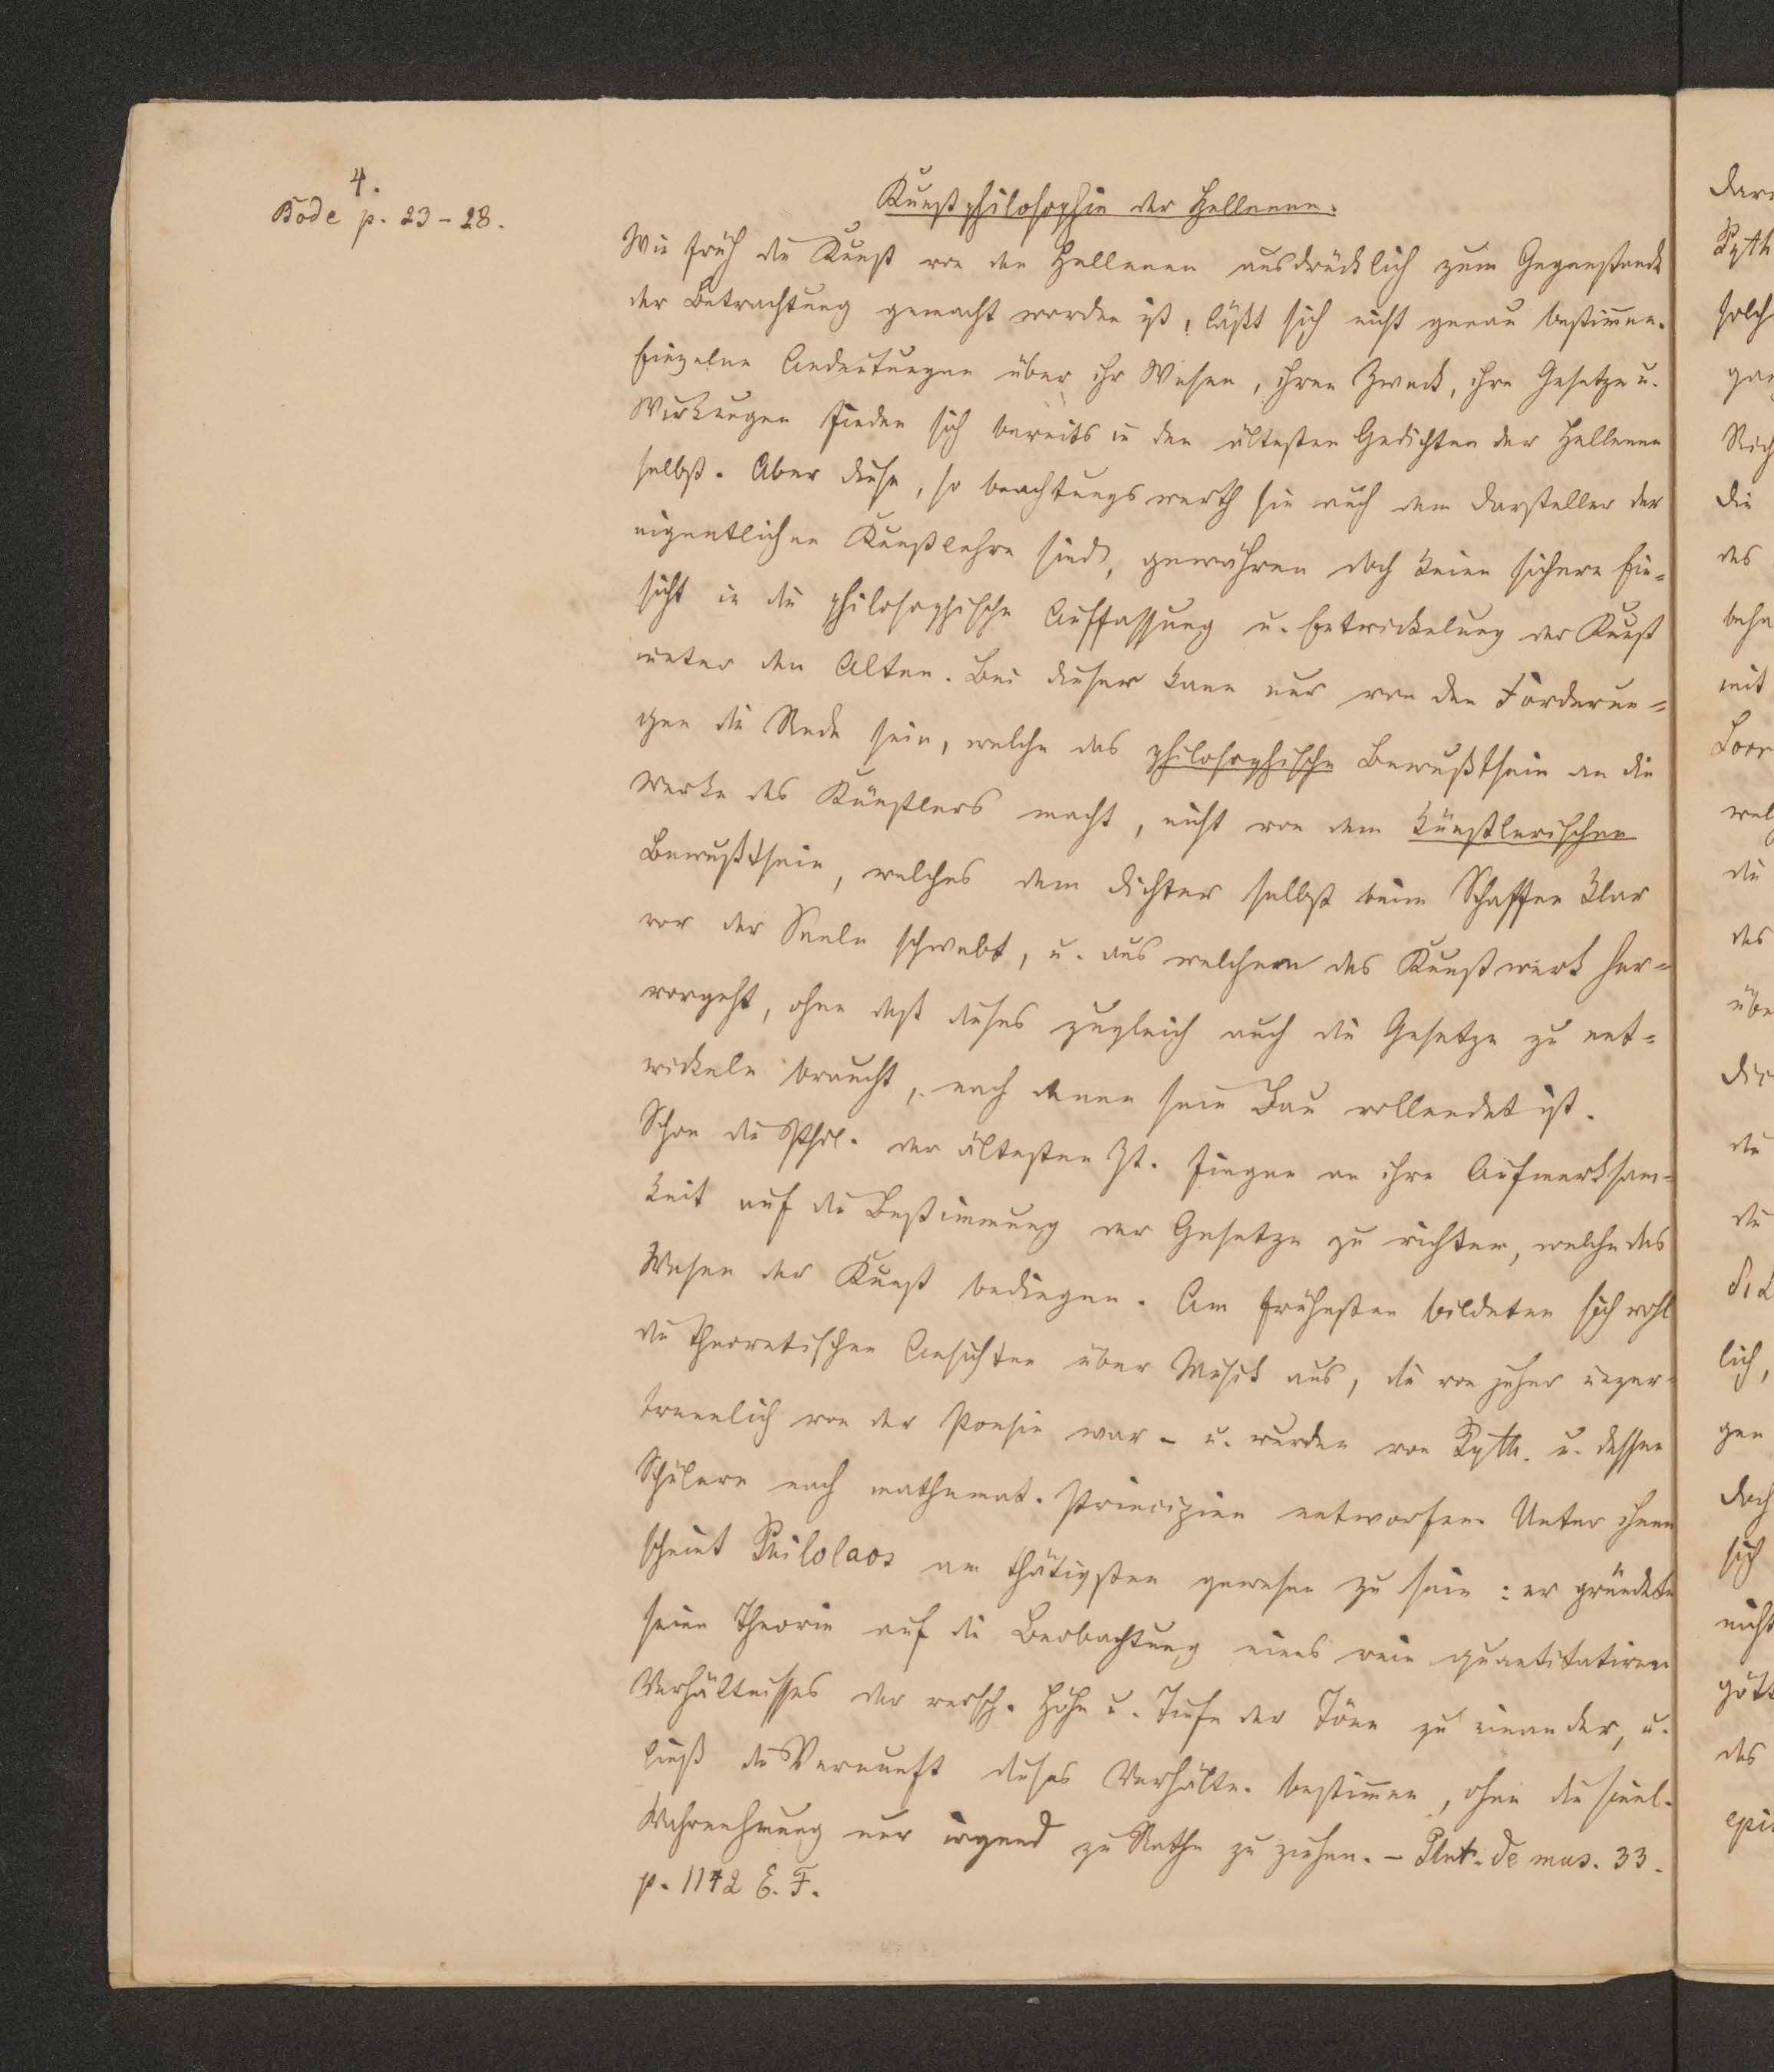 4.
Bode p. 23-28.
Kunstphilosophie der Hellenen.
Wie früh die Kunst von den Hellenen ausdrücklich zum Gegenstande
der Betrachtung gemacht worden ist, läßt sich nicht genau bestimmen.
Einzelne Andeutungen über ihr Wesen, ihren Zweck, ihre Gesetze u.
Wirkungen finden sich bereits in den ältesten Gedichten der Hellenen
selbst. Aber diese, so beachtungswerth sie auch dem Darsteller der
eigentlichen Kunstlehre sind, gewähren doch keine sichere Ein=
sicht in die philosophische Auffassung u. Entwickelung der Kunst
unter den Alten. Bei dieser kann nur von den Forderun=
gen die Rede sein, welche das philosophische Bewußtsein an die
Werke des Künstlers macht, nicht von dem künstlerischen
Bewußtsein, welches dem Dichter selbst beim Schaffen klar
vor der Seele schwebt, u. aus welchem das Kunstwerk her=
vorgeht, ohne daß dieses zugleich auch die Gesetze zu ent=
wickeln braucht, nach denen sein Bau vollendet ist.
Schon die Phil. der ältesten Zt. fingen an ihre Aufmerksam-
keit auf die Bestimmung der Gesetze zu richten, welche das
Wesen der Kunst bedingen. Am frühesten bildeten sich wohl
die theoretischen Ansichten über Musik aus, die von jeher unzer-
trennlich von der Poesie war - u. wurden von Pyth. u. dessen
Schülern nach mathemat. Principien entworfen. Unter ihnen
scheint Philolaos am thätigsten gewesen zu sein: er gründete
seine Theorie auf die Beobachtung eines rein quantitativen
Verhältnisses der versch. Höhe u. Tiefe der Töne zu einander, u.
ließ die Vernunft dieses Verhältn. bestimmen, ohne die sinnl.
Wahrnehmung nur irgend zu Rathe zu ziehen. - Plut. de mus. 33.
p. 1142 E. F.
Pyth
solch
die
des
mit
welch
die
des
übe
die
die
lich,
gen
doch
sich
nicht
gött
des